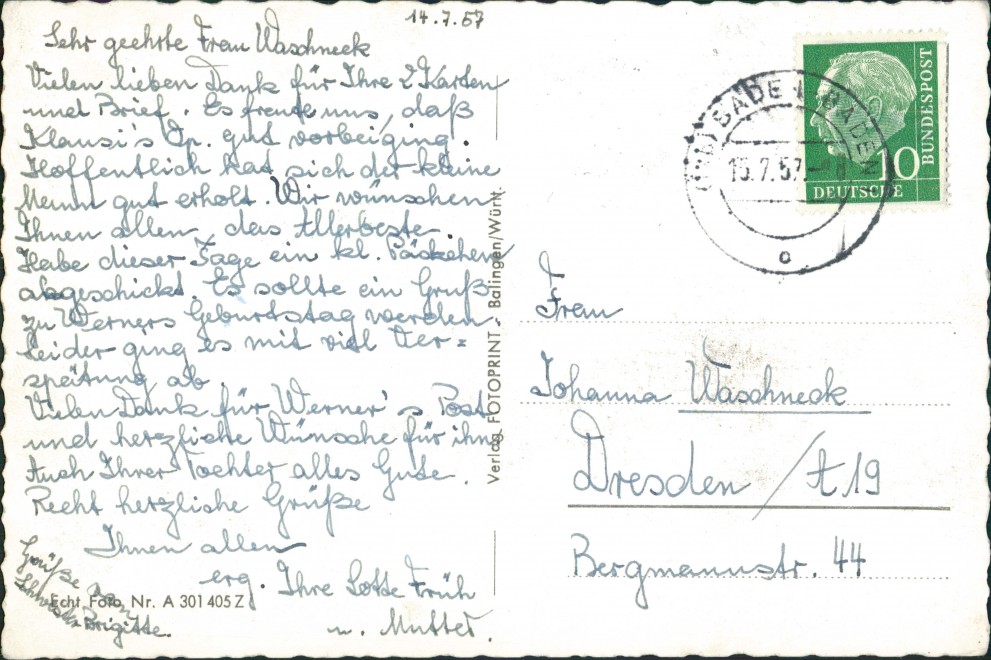 14.7.57
Sehr geehrte Frau Waschneck
Vielen lieben Dank für Ihre 2 Karten
und Brief. Es freute uns, daß
Klausi's Op. gut vorbeiging.
Hoffentlich hat sich der kleine
Mann gut erholt. Wir wünschen
Ihnen allen, das Allerbeste.
Habe dieser Tage ein kl. Päckchen
abgeschickt. Es sollte ein Gruß
zu Werners Geburtstag werden.
Leider ging es mit viel Ver=
spätung ab.
Vielen Dank für Werner's Post
und herzliche Wünsche für ihn
Auch Ihrer Tochter alles Gute.
Recht herzliche Grüße
Ihnen allen
erg. Ihre Lotte Früh
u. Mutter.
Grüße von
Schwester
Brigitte.
Echt Foto Nr. A 301 405 Z
Verlag FOTOPRINT - Balingen/Württ.
BADEN-BADEN
15.7.57
10
DEUTSCHE
BUNDESPOST
Frau
Johanna Waschneck
Dresden / A 19
Bergmannstr. 44